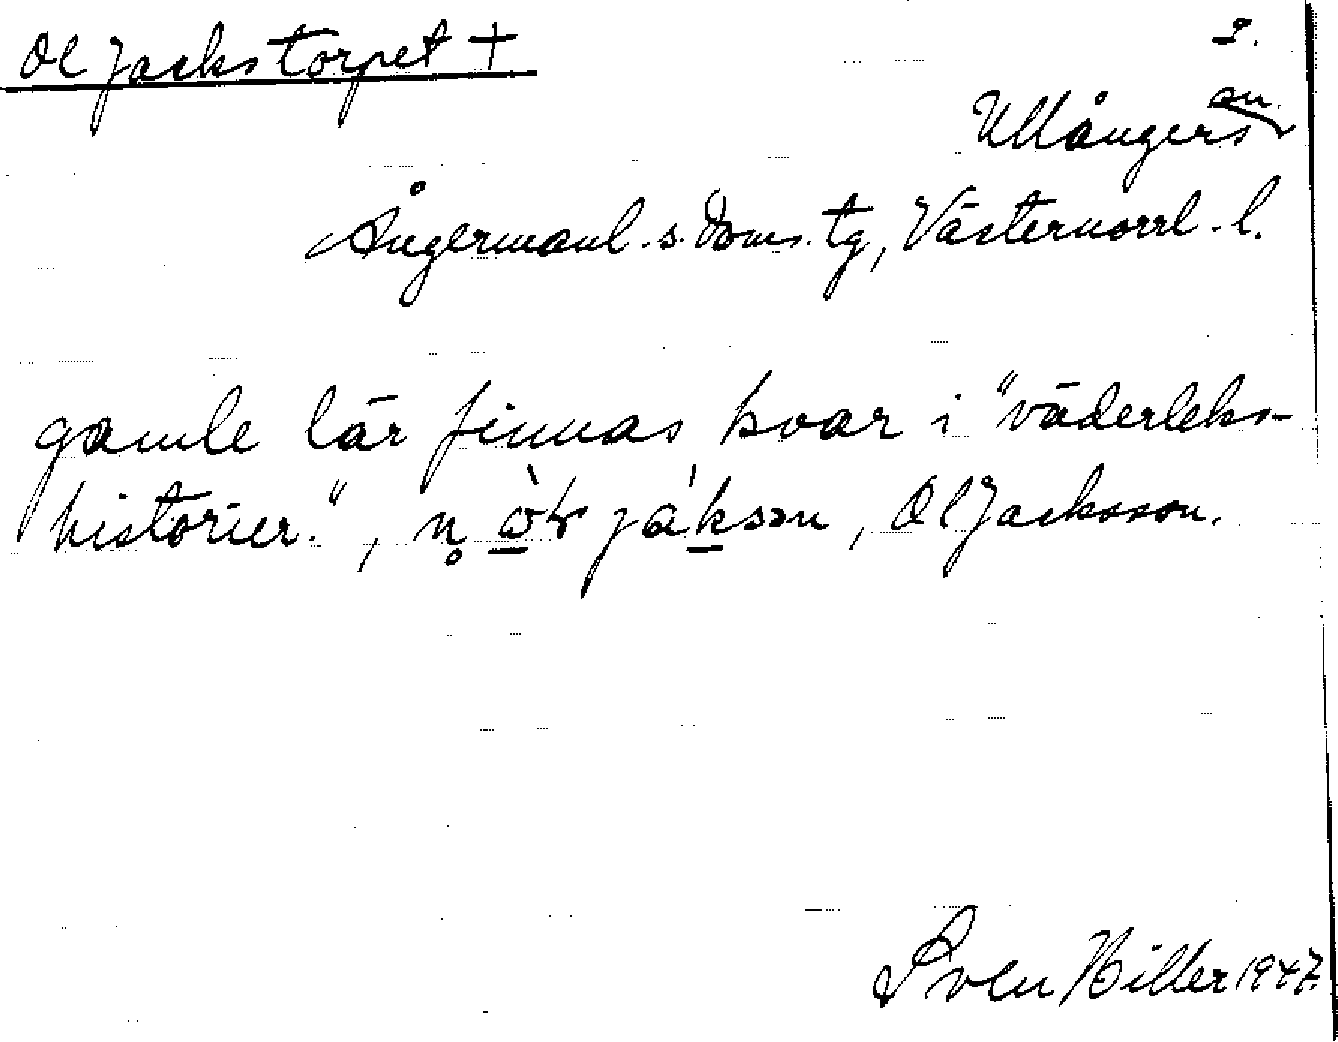 Ol Jackstorpet +
2.
Ullångers sn.
Ångermanl. s. doms. tg, Västernorrl. l.
gamle lär finnas kvar i "väderleks-
historier.", n̥ jáksɔn, Ol Jacksson.
Sven Hiller 1947.